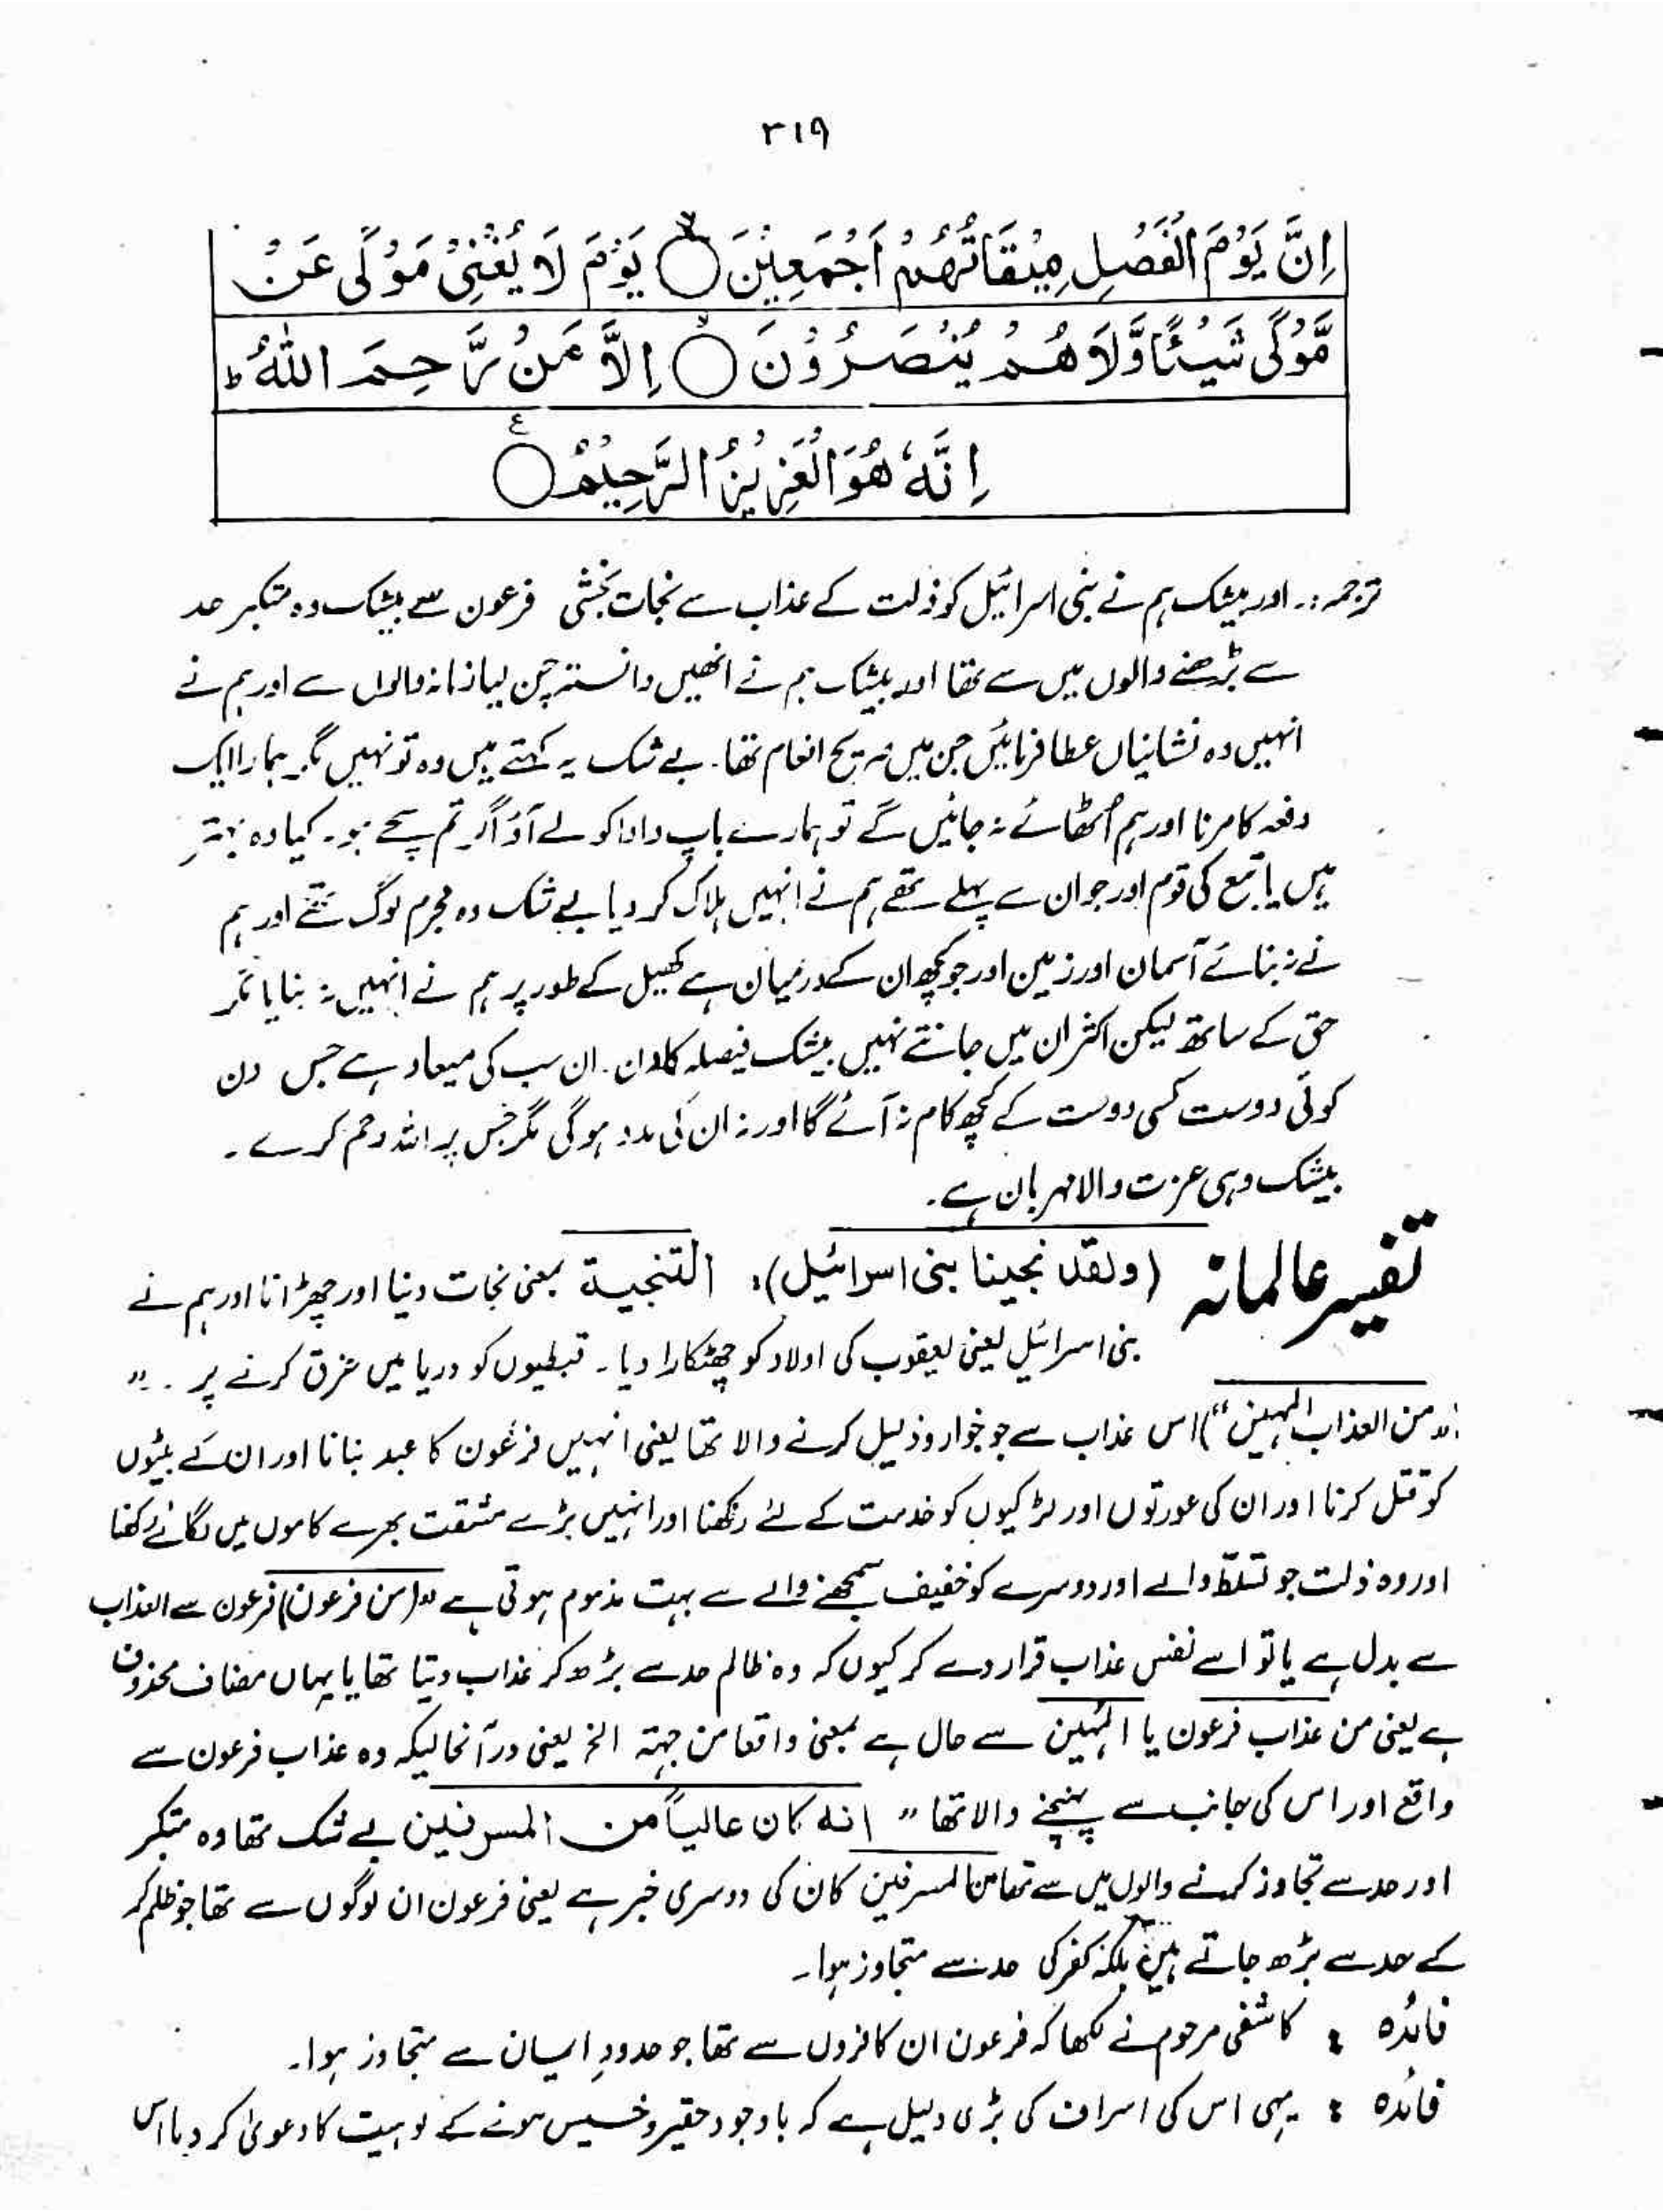 ۳۱۹
اِنَّ یَوْمَ الْفَصْلِ مِیْقَاتُهُمْ اَجْمَعِیْنَ ○ یَوْمَ لَا یُغْنِیْ مَوْلًی عَنْ
مَّوْلًی شَیْئًا وَّلَا هُمْ یُنْصَرُوْنَ ○ اِلَّا مَنْ رَّحِمَ اللّٰهُ ؕ
اِنَّهٗ هُوَ الْعَزِیْزُ الرَّحِیْمُ ○
ترجمہ:۔ اور بیشک ہم نے بنی اسرائیل کو ذلت کے عذاب سے نجات بخشی فرعون سے بیشک وہ متکبر حد
سے بڑھنے والوں میں سے تھا اور بیشک ہم نے انھیں دانستہ چن لیا زمانہ والوں سے اور ہم نے
انہیں وہ نشانیاں عطا فرمائیں جن میں صریح انعام تھا۔ بے شک یہ کہتے ہیں وہ تو نہیں مگر ہمارا ایک
دفعہ کا مرنا اور ہم اُٹھائے نہ جائیں گے تو ہمارے باپ دادا کو لے آؤ اگر تم سچے ہو۔ کیا وہ بہتر
ہیں یا تبع کی قوم اور جو ان سے پہلے تھے ہم نے انہیں ہلاک کر دیا بے شک وہ مجرم لوگ تھے اور ہم
نے نہ بنائے آسمان اور زمین اور جو کچھ ان کے درمیان ہے کھیل کے طور پر ہم نے انہیں نہ بنایا مگر
حق کے ساتھ لیکن اکثر ان میں جانتے نہیں بیشک فیصلہ کا دن۔ ان سب کی میعاد ہے جس دن
کوئی دوست کسی دوست کے کچھ کام نہ آئے گا اور نہ ان کی مدد ہوگی مگر جس پر اللہ رحم کرے ۔
بیشک وہی عزت والا مہربان ہے۔
تفسیر عالمانہ (ولقد نجینا بنی اسرائیل)؛ التنجیۃ بمعنی نجات دینا اور چھڑانا اور ہم نے
بنی اسرائیل یعنی یعقوب کی اولاد کو چھٹکارا دیا۔ قبطیوں کو دریا میں غرق کرنے پر ۔۔ "
من العذاب المہین") اس عذاب سے جو خوار و ذلیل کرنے والا تھا یعنی انہیں فرعون کا عبد بنانا اور ان کے بیٹوں
کو قتل کرنا اور ان کی عورتوں اور لڑکیوں کو خدمت کے لئے رکھنا اور انہیں بڑے مشقت بھرے کاموں میں لگائے رکھنا
اور وہ ذلت جو تسلّط والے اور دوسرے کو خفیف سمجھنے والے سے بہت مذموم ہوتی ہے "(من فرعون) فرعون سے العذاب
سے بدل ہے یا تو اسے نفس عذاب قرار دے کر کیوں کہ وہ ظالم حد سے بڑھ کر عذاب دیتا تھا یا یہاں مضاف محذوف
ہے یعنی من عذاب فرعون یا المہین سے حال ہے بمعنی واقعا من جہتہ الخ یعنی درآنحالیکہ وہ عذاب فرعون سے
واقع اور اس کی جانب سے پہنچنے والا تھا " انہ کان عالیاً من المسرفین بے شک تھا وہ متکبر
اور حد سے تجاوز کرنے والوں میں سے تھا من المسرفین کان کی دوسری خبر ہے یعنی فرعون ان لوگوں سے تھا جو ظلم کر
کے حد سے بڑھ جاتے ہیں بلکہ کفر کی حد سے متجاوز ہوا۔
فائدہ : کاشفی مرحوم نے لکھا کہ فرعون ان کافروں سے تھا جو حدودِ ایمان سے متجاوز ہوا۔
فائدہ : یہی اس کی اسراف کی بڑی دلیل ہے کہ باوجود حقیر و خسیس ہونے کے لوہیت کا دعویٰ کر دیا اس